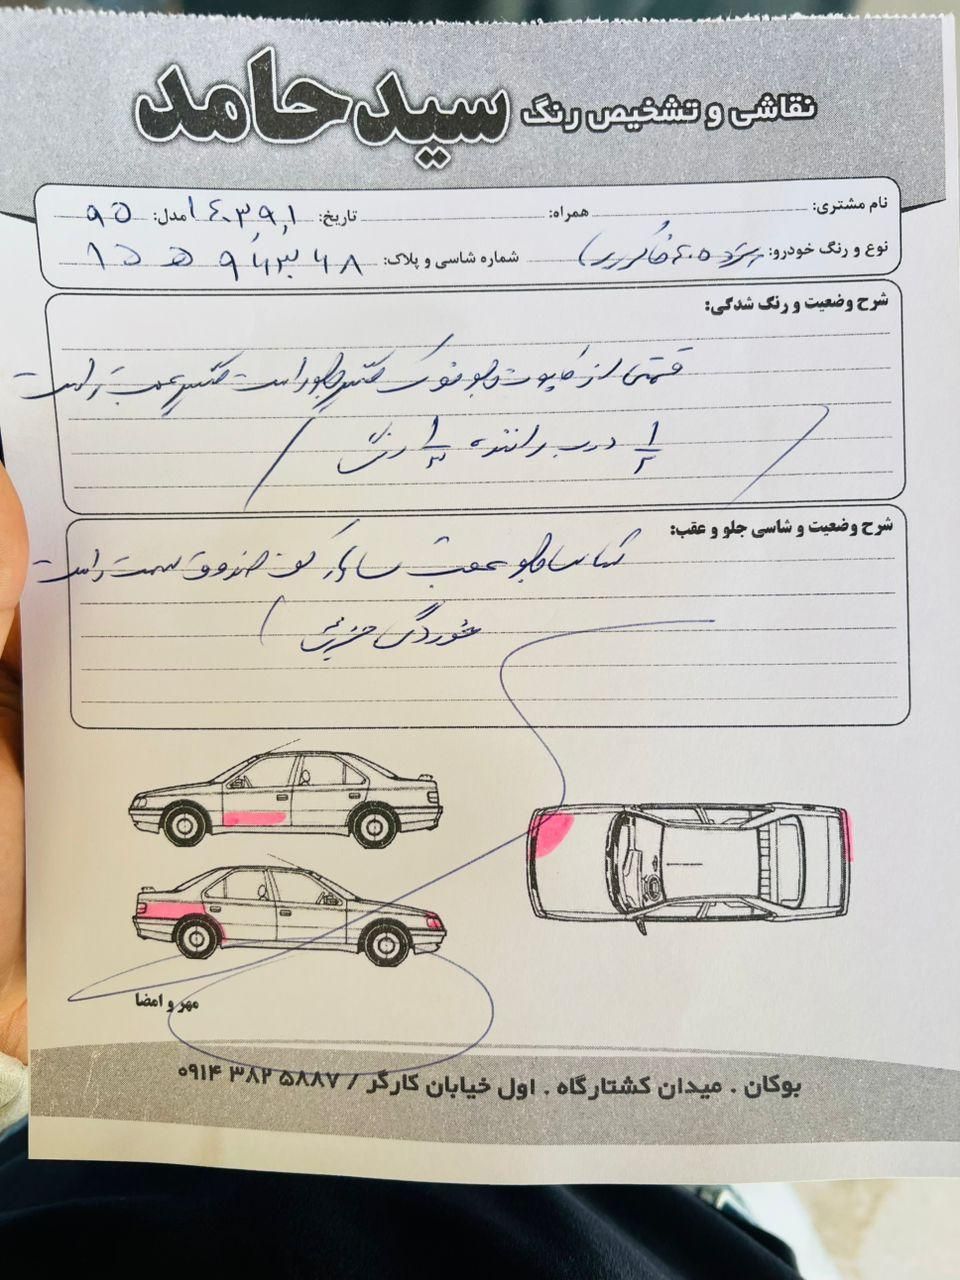 نقاشی و تشخیص رنگ سید حامد
نام مشتری: همراه: تاریخ: ۱۴۰۳٫۹٫۱ مدل: ۹۵
نوع و رنگ خودرو: پژو ۴۰۵ خاکستری شماره شاسی و پلاک:
شرح وضعیت و رنگ شدگی:
قسمتی از کاپوت جلو گلگیر جلو راست گلگیر عقب راست
۱/۲ درب راننده ۱/۳ رنگ
شرح وضعیت و شاسی جلو و عقب:
جلو عقب سالم کف صندوق سمت راست
خوردگی جزئی
مهر و امضا
بوکان . میدان کشتارگاه . اول خیابان کارگر / ۰۹۱۴ ۳۸۲ ۵۸۸۷